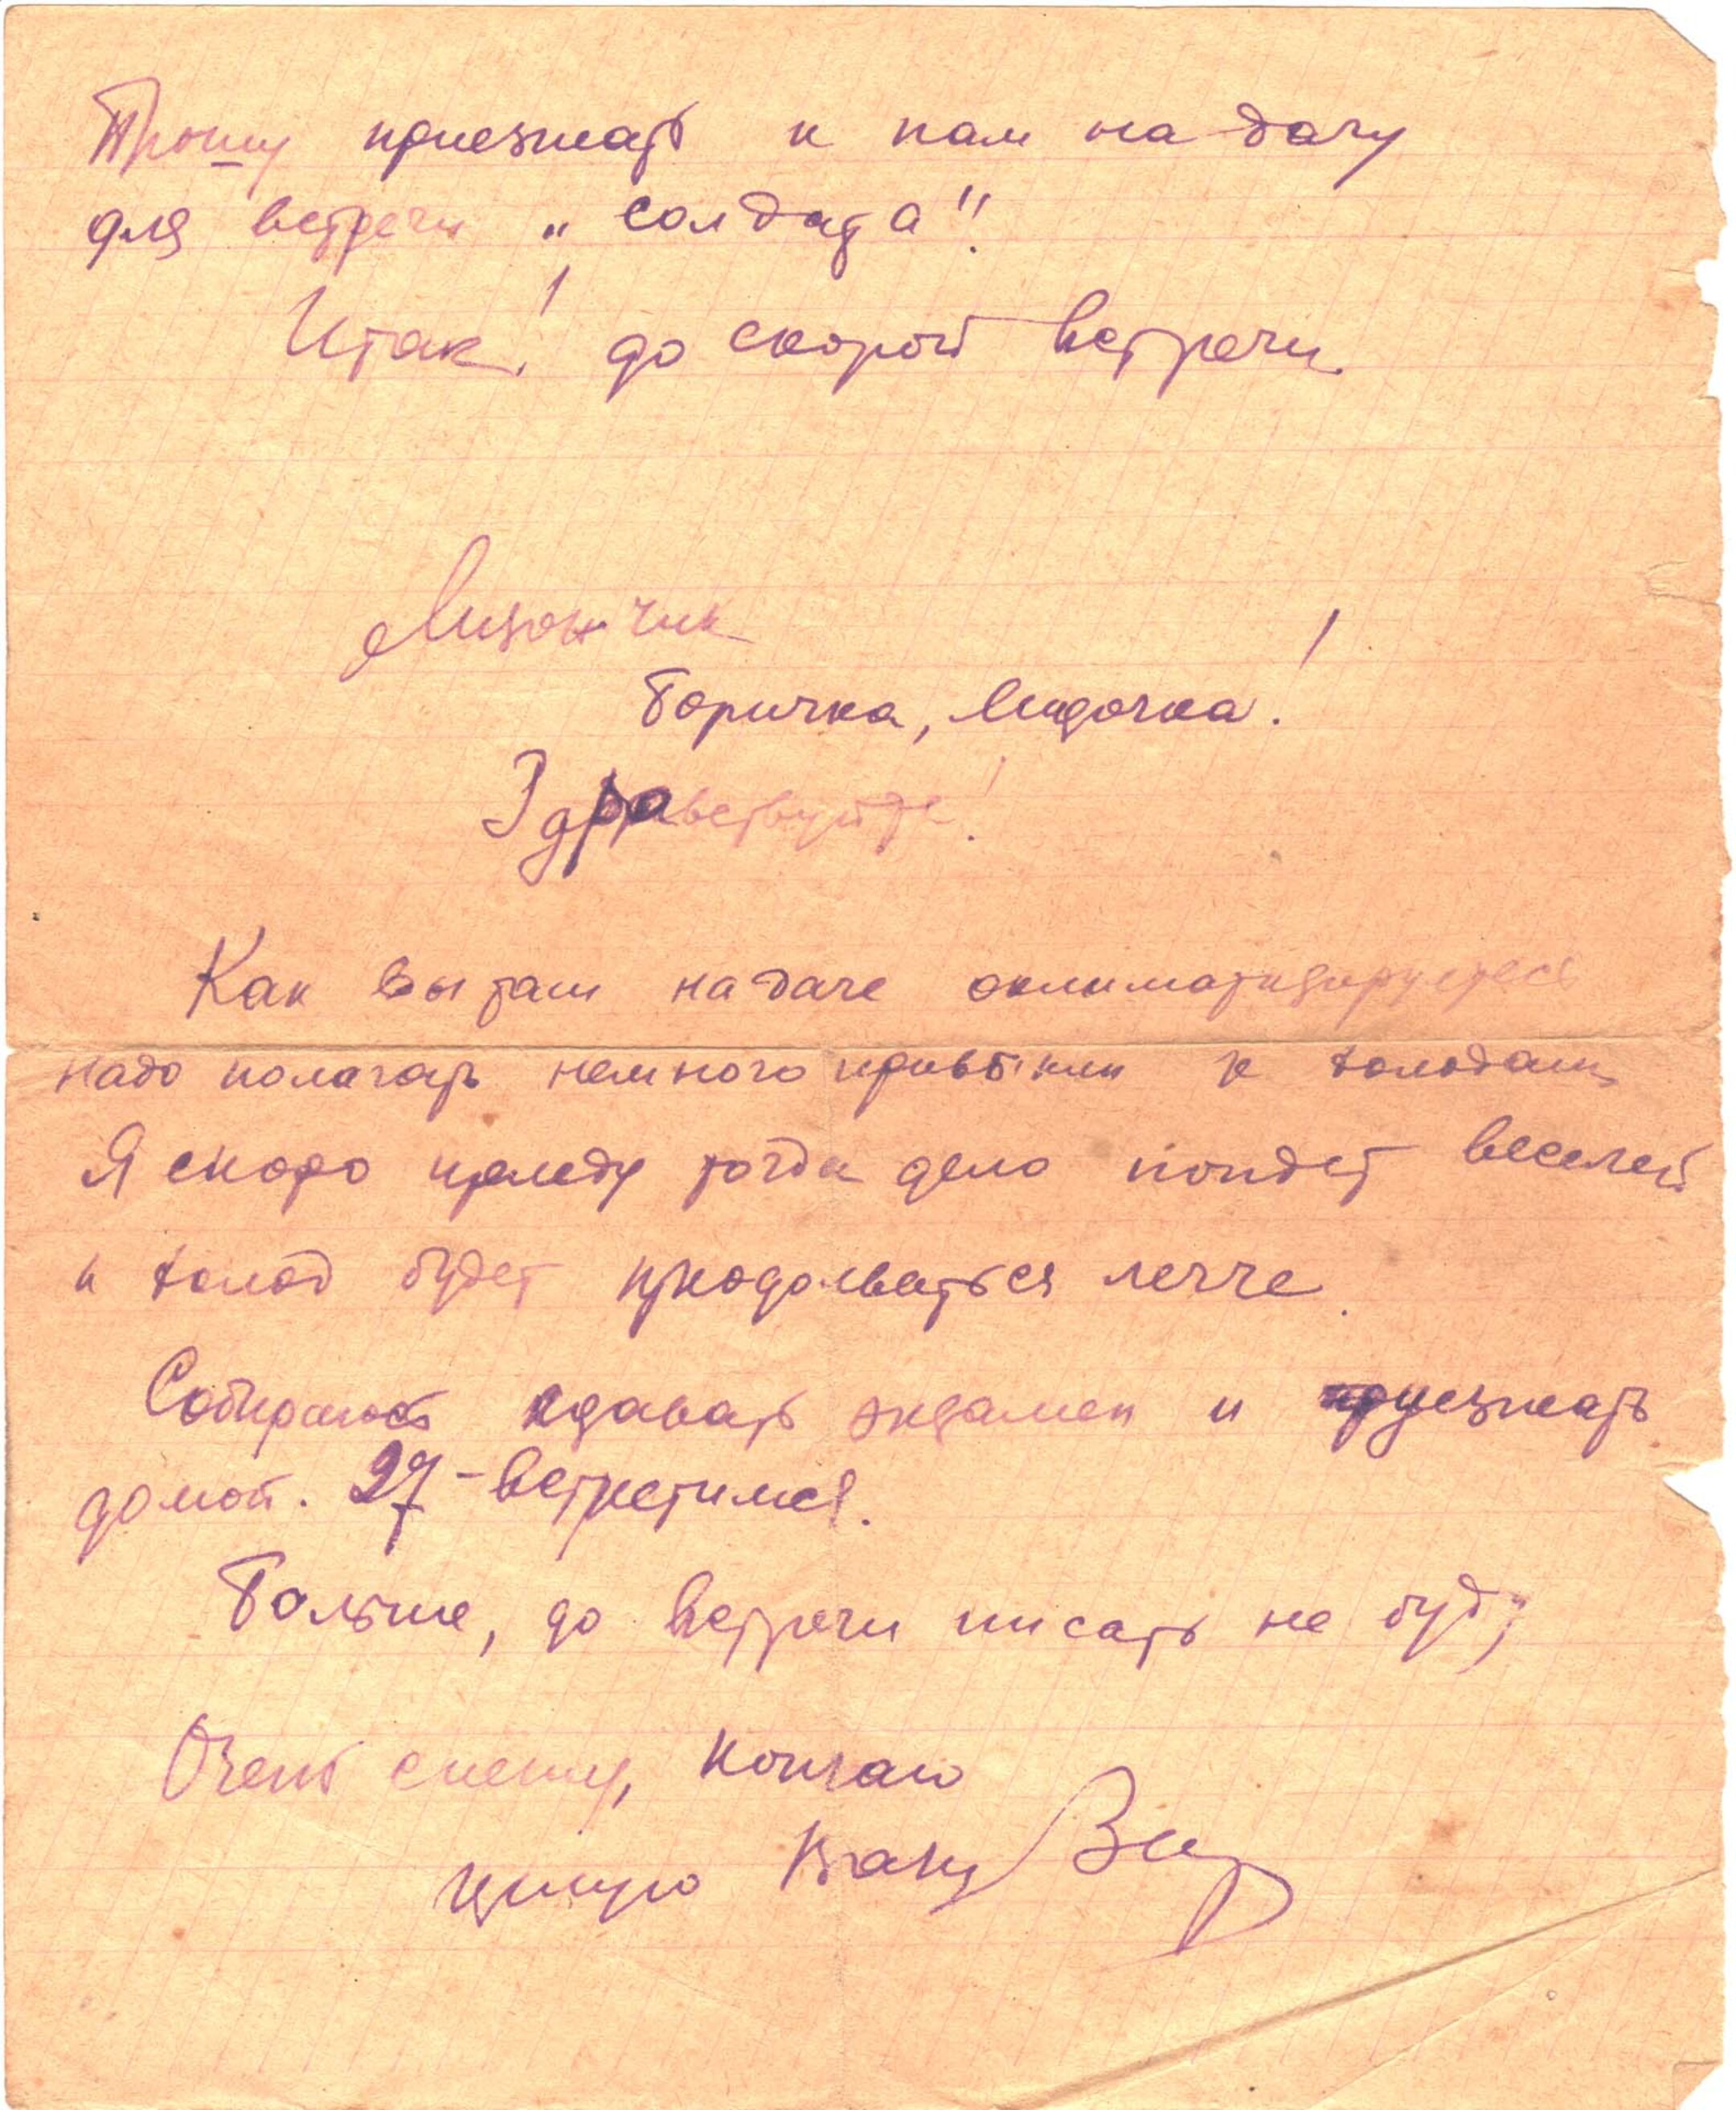 Прошу приезжать к нам на дачу
для встречи „солдата"
Итак! до скорой встречи
Лизончик
Боричка, Лидочка!
Здравствуйте!
Как вы там на даче оклиматизируетесь
надо полагать немного привыкли к холодам
Я скоро приеду тогда дело пойдет веселей
и холод будет преодолеваться легче.
Собираюсь сдавать экзамен и приезжать
домой. 27 - встретимся.
Больше, до встречи писать не буду
Очень спешу, кончаю
целую Вашу